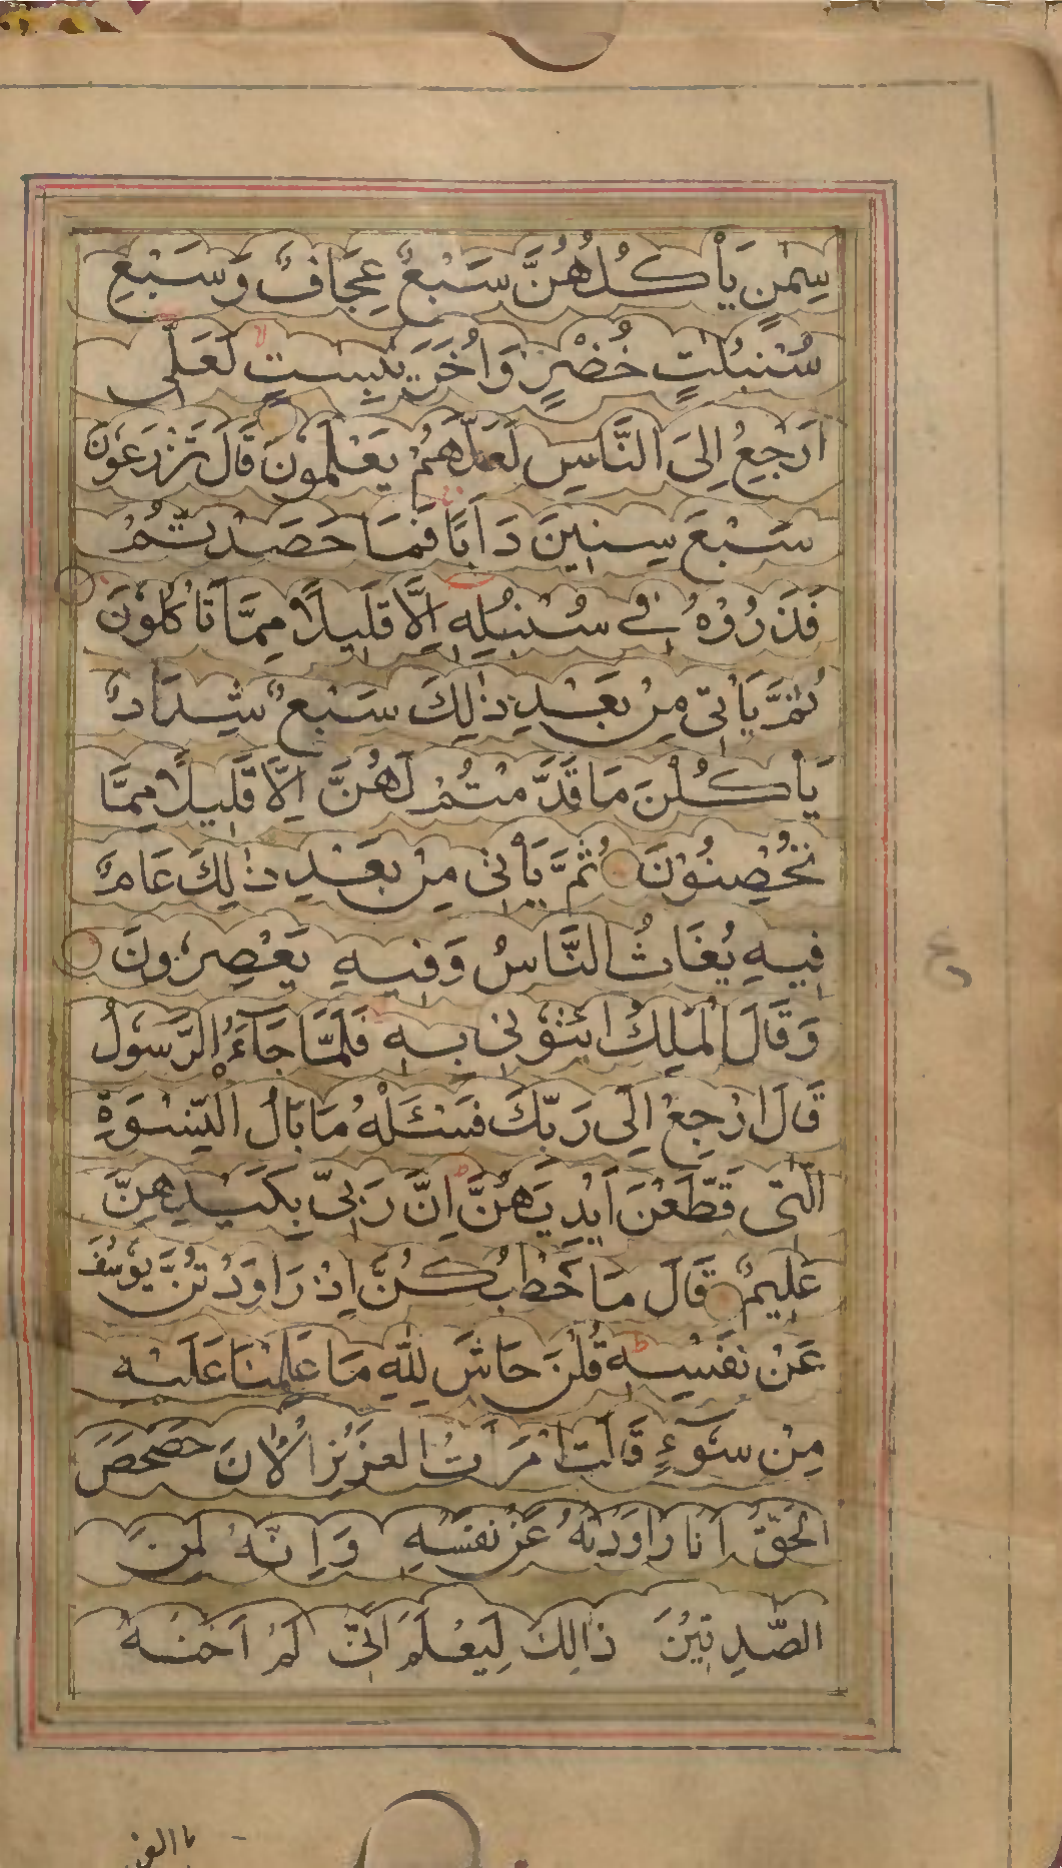 سِمٰنٍ يَأْكُلُهُنَّ سَبْعٌ عِجَافٌ وَسَبْعِ
سُنْبُلٰتٍ خُضْرٍ وَاُخَرَ يٰبِسٰتٍ لَعَلِّى
اَرْجِعُ اِلَى النَّاسِ لَعَلَّهُمْ يَعْلَمُونَ قَالَ تَزْرَعُونَ
سَبْعَ سِنِينَ دَاَبًا فَمَا حَصَدْتُّمْ
فَذَرُوْهُ فِى سُنْبُلِهِ اِلَّا قَلِيلًا مِمَّا تَاْكُلُونَ
ثُمَّ يَاْتِى مِنْ بَعْدِ ذٰلِكَ سَبْعٌ شِدَادٌ
يَأْكُلْنَ مَا قَدَّمْتُمْ لَهُنَّ اِلَّا قَلِيلًا مِمَّا
تُحْصِنُوْنَ ثُمَّ يَأْتِى مِنْ بَعْدِ ذٰلِكَ عَامٌ
فِيهِ يُغَاثُ النَّاسُ وَفِيهِ يَعْصِرُونَ
وَقَالَ الْمَلِكُ ائْتُوْنِى بِهِ فَلَمَّا جَآءَهُ الرَّسُولُ
قَالَ ارْجِعْ اِلٰى رَبِّكَ فَسْئَلْهُ مَا بَالُ النِّسْوَةِ
الّٰتِى قَطَّعْنَ اَيْدِيَهُنَّ اِنَّ رَبِّىْ بِكَيْدِهِنَّ
عَلِيمٌ قَالَ مَا خَطْبُكُنَّ اِذْ رَاوَدْتُنَّ يُوْسُفَ
عَنْ نَفْسِهِ قُلْنَ حَاشَ لِلّٰهِ مَا عَلِمْنَا عَلَيْهِ
مِنْ سُوْٓءٍ قَالَتِ امْرَاَتُ الْعَزِيْزِ الْاٰنَ حَصْحَصَ
الْحَقُّ اَنَا رَاوَدْتُهُ عَنْ نَفْسِهِ وَاِنَّهُ لَمِنَ
الصّٰدِقِيْنَ ذٰالِكَ لِيَعْلَمَ اَنِّى لَمْ اَخُنْهُ
ع